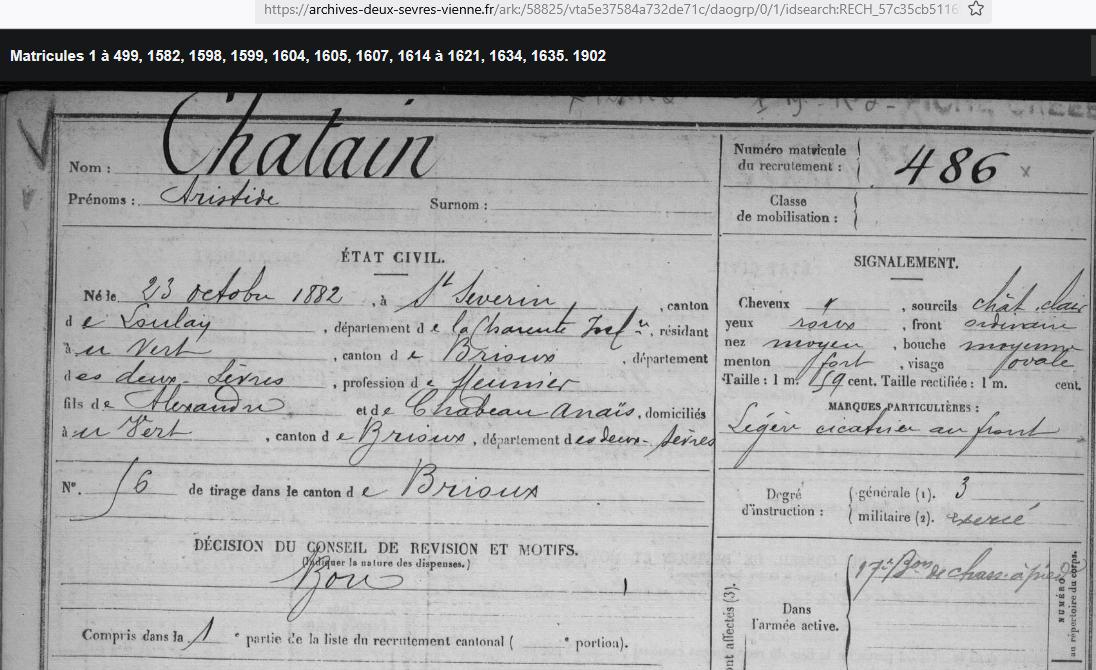 https://archives-deux-sevres-vienne.fr/ark:/58825/vta5e37584a732de71c/daogrp/0/1/idsearch:RECH_57c35cb5116
Matricules 1 à 499, 1582, 1598, 1599, 1604, 1605, 1607, 1614 à 1621, 1634, 1635. 1902
Nom : Chatain
Prénoms : Aristide Surnom :
Numéro matricule du recrutement : 486
Classe de mobilisation :
ÉTAT CIVIL.
Né le 23 octobre 1882, à St Severin, canton
de Loulay, département de la Charente Infre, résidant
à Vert, canton de Brioux, département
des deux-Sèvres, profession de Meunier
fils de Alexandre et de Chabeau Anaïs, domiciliés
à Vert, canton de Brioux, département des deux-Sèvres
SIGNALEMENT.
Cheveux, sourcils chât clair
yeux roux, front ordinaire
nez moyen, bouche moyenne
menton fort, visage ovale
Taille : 1 m. 59 cent. Taille rectifiée : 1 m. cent.
MARQUES PARTICULIÈRES :
Légère cicatrice au front
N°. 56 de tirage dans le canton de Brioux
Degré d'instruction : générale (1). 3
militaire (2). exercé
DÉCISION DU CONSEIL DE REVISION ET MOTIFS.
(Indiquer la nature des dispenses.)
Bon
Compris dans la 1e partie de la liste du recrutement cantonal ( e portion).
nt affectés (3).
Dans l'armée active.
17e Bon de chass. à pied
NUMÉRO
au répertoire du corps.